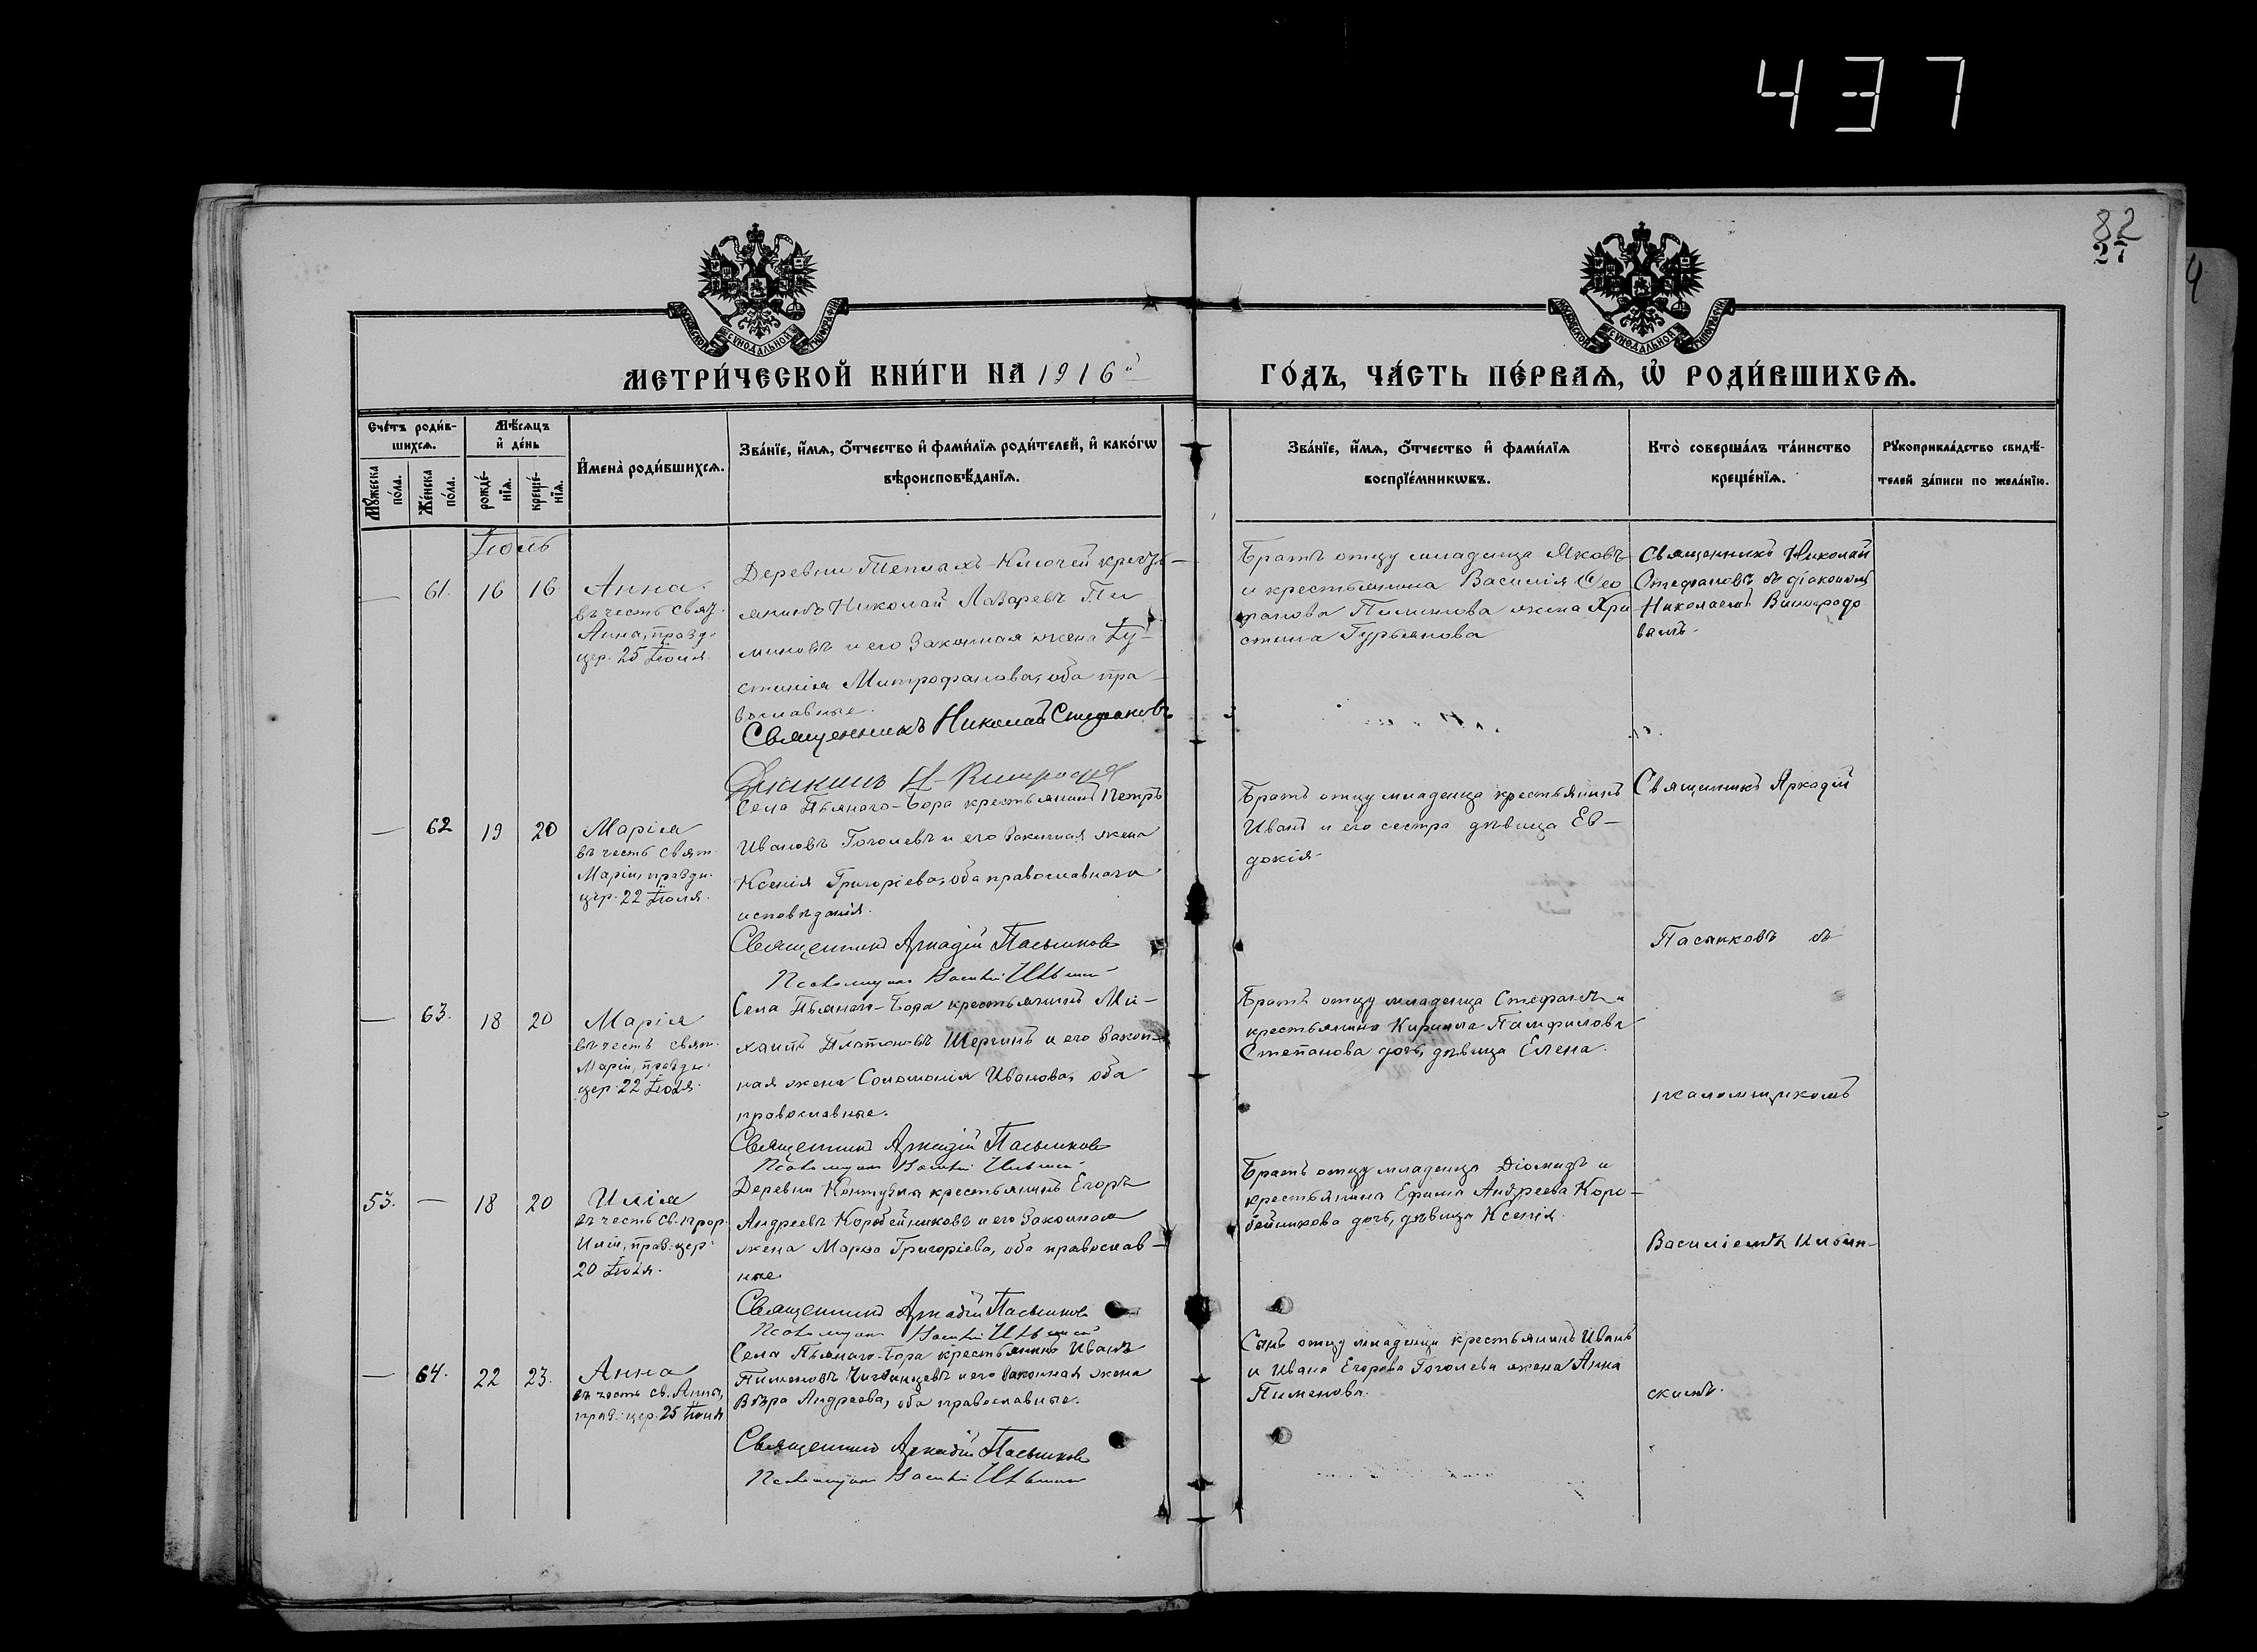 437
82
27
4
МОСКОВСКОЙ СУНОДАЛЬНОЙ ТИПОГРАФІИ
МОСКОВСКОЙ СУНОДАЛЬНОЙ ТИПОГРАФІИ
МЕТРИ́ЧЕСКОЙ КНИ́ГИ НА 1916й
ГО́ДЪ, ЧА́СТЬ ПЕ́РВАѦ, Ѡ҆ РОДИ́ВШИХСѦ.
Сче́тъ роди́в-
шихсѧ.
Мꙋ́жеска по́ла.
Же́нска по́ла.
Мѣ́сѧцъ
и҆ де́нь
рожде́-
нїѧ.
креще́-
нїѧ.
И҆мена̀ роди́вшихсѧ.
Зва́нїе, и҆́мѧ, ѻ҆́тчество и҆ фами́лїѧ роди́телей, и҆ како́гѡ
вѣроисповѣ́данїѧ.
Зва́нїе, и҆́мѧ, ѻ҆́тчество и҆ фами́лїѧ
воспрїе́мникѡвъ.
Кто̀ соверша́лъ та́инство
креще́нїѧ.
Рꙋкоприкла́дство свидѣ́-
телей за́писи по жела́нїю.
Іюль
— 61. 16 16 Анна.
въ честь свят.
Анна, празд.
цер. 25 Іюля.
Деревни Теплахъ-Ключей кресть-
янинъ Николай Лазаревъ Пи
миновъ и его законная жена Іу-
стинія Митрофанова, оба пра-
вославные.
Священникъ Николай Стефановъ
Братъ отцу младенца Яковъ
и крестьянина Василія Ѳео
фанова Пиминова жена Хри
стина Гурьянова
Священникъ Николай
Стефановъ съ діакономъ
Николаемъ Виноградо
вымъ.
— 62 19 20 Марія
въ честь свят.
Маріи, праздн.
цер. 22 Іюля.
Села Пьянаго-Бора крестьянинъ Петръ
Ивановъ Гоголевъ и его законная жена
Ксенія Григоріева, оба православнаго
исповѣданія.
Священникъ Аркадій Пасынковъ
Псаломщикъ Василій Ильинскій
Братъ отцу младенца крестьянинъ
Иванъ и его сестра дѣвица Ев-
докія.
Священникъ Аркадій
Пасынковъ съ
— 63. 18 20 Марія
въ честь свят.
Маріи, праздн.
цер. 22 Іюля.
Села Пьянаго-Бора крестьянинъ Ми-
хаилъ Платоновъ Шергинъ и его закон-
ная жена Соломонія Иванова, оба
православные.
Священникъ Аркадій Пасынковъ
Псаломщикъ Василій Ильинскій
Братъ отцу младенца Стефанъ и
крестьянина Кирилла Памфилова
Степанова дочь, дѣвица Елена.
псаломщикомъ
53. — 18 20 Илія
въ честь св. прор.
Иліи, праз. цер.
20 Іюля.
крестьянинъ Егоръ
Андреевъ Коробейниковъ и его законная
жена Марѳа Григоріева, оба православ-
ные
Священникъ Аркадій Пасынковъ
Псаломщикъ Василій Ильинскій
Братъ отцу младенца Діомидъ и
крестьянина Ефима Андреева Коро-
бейникова дочь, дѣвица Ксенія.
Василіемъ Ильин-
— 64. 22 23. Анна
въ честь св. Анны,
праз. цер. 25 Іюля
Села Пьянаго-Бора крестьянинъ Иванъ
Пименовъ и его законная жена
Вѣра Андреева, оба православные.
Священникъ Аркадій Пасынковъ
Псаломщикъ Василій Ильинскій
Сынъ отцу младенца крестьянинъ Иванъ
и Ивана Егорова Гоголева жена Анна
Пименова.
скимъ.